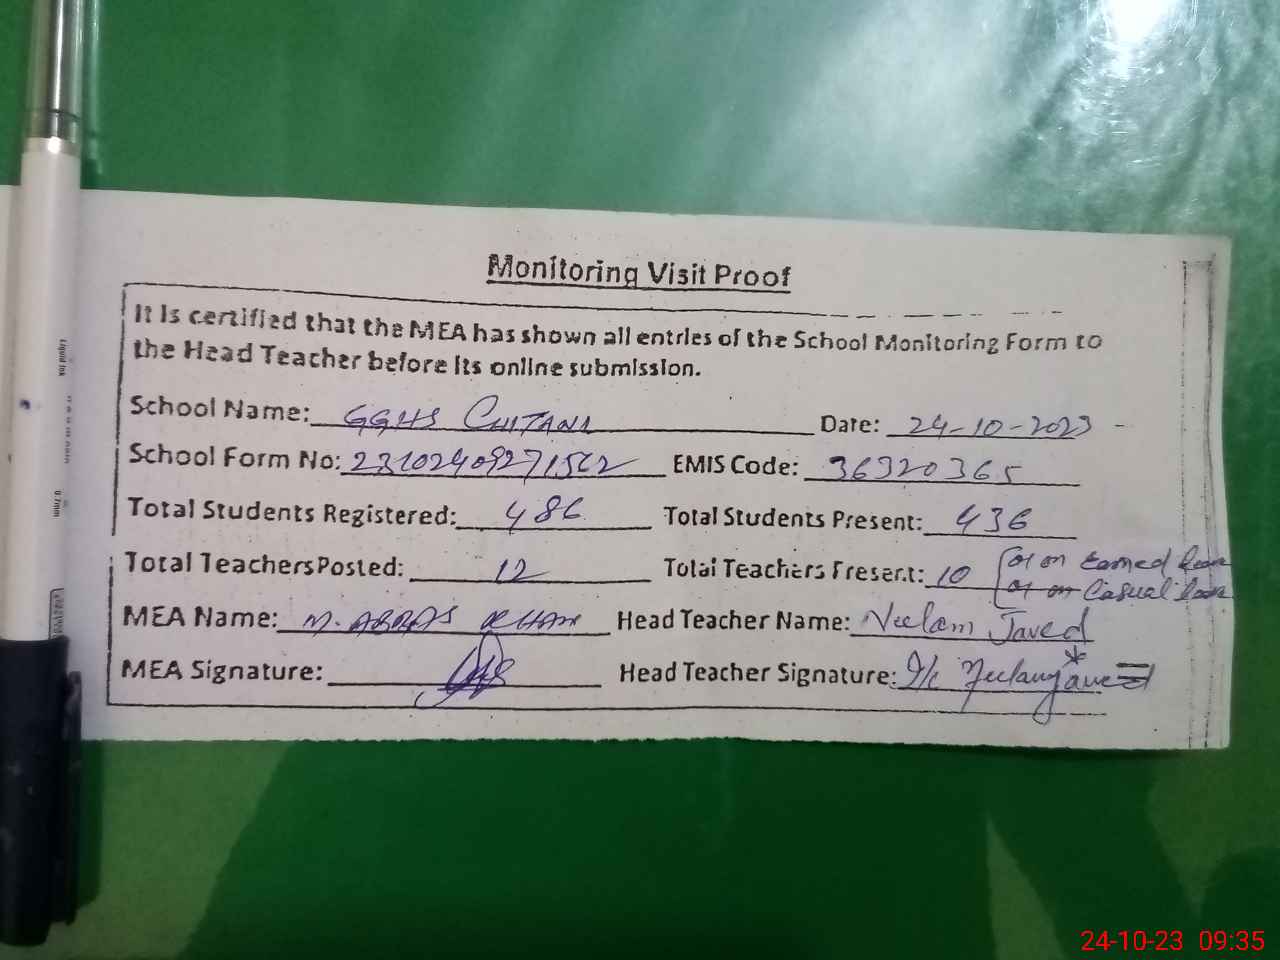 Monitoring Visit Proof
It is certified that the MEA has shown all entries of the School Monitoring Form to
the Head Teacher before its online submission.
School Name: GGHS CHITANI Date: 24-10-2023
School Form No: EMIS Code: 36320365
Total Students Registered: 486 Total Students Present: 436
Total Teachers Posted: 12 Total Teachers Present: 10 01 on Earned leave
01 on Casual leave
MEA Name: M. ABBAS KHAN Head Teacher Name: Neelam Javed
MEA Signature: Head Teacher Signature: I/c Neelam Javed
Liquid Ink
0.7mm
24-10-23 09:35